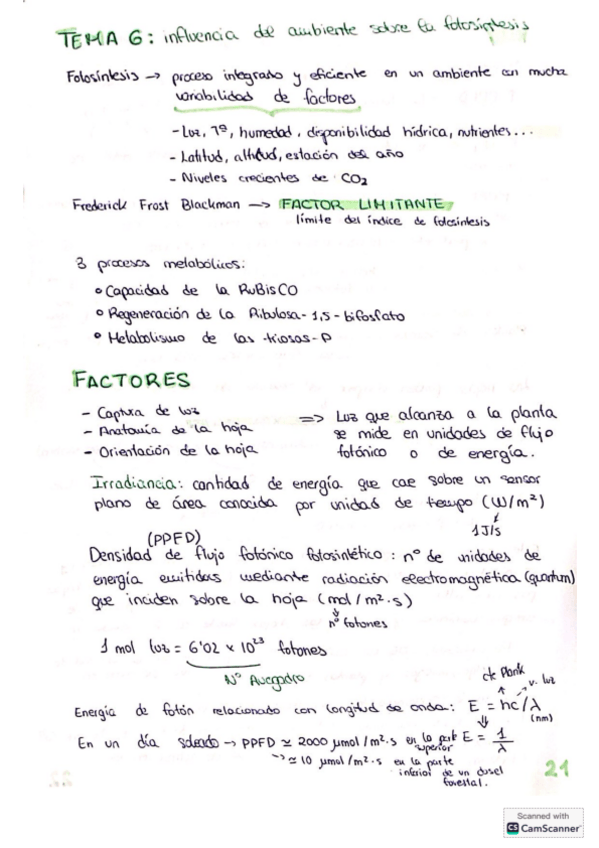 TEMA 6: influencia del ambiente sobre la fotosíntesis
Fotosíntesis → proceso integrado y eficiente en un ambiente con mucha
variabilidad de factores
- Luz, Tª, humedad, disponibilidad hídrica, nutrientes...
- Latitud, altitud, estación del año
- Niveles crecientes de CO2
Frederick Frost Blackman → FACTOR LIMITANTE
límite del índice de fotosíntesis
3 procesos metabólicos:
• Capacidad de la RuBisCO
• Regeneración de la Ribulosa-1,5-bifosfato
• Metabolismo de las triosas-P
FACTORES
- Captura de luz
- Anatomía de la hoja
- Orientación de la hoja
=> Luz que alcanza a la planta
se mide en unidades de flujo
fotónico o de energía.
Irradiancia: cantidad de energía que cae sobre un sensor
plano de área conocida por unidad de tiempo (W/m²)
1J/s
(PPFD)
Densidad de flujo fotónico fotosintético: nº de unidades de
energía emitidas mediante radiación electromagnética (quantum)
que inciden sobre la hoja (mol/m²·s)
nº fotones
1 mol luz = 6'02 x 10²³ fotones
Nº Avogadro
cte Plank
v. luz
Energía de fotón relacionado con longitud de onda: E = hc/λ
(nm)
En un día soleado → PPFD ≃ 2000 μmol/m²·s en la parte superior
E = 1/λ
→ ≃ 10 μmol/m²·s en la parte
inferior de un dosel
forestal.
21
Scanned with
CS CamScanner